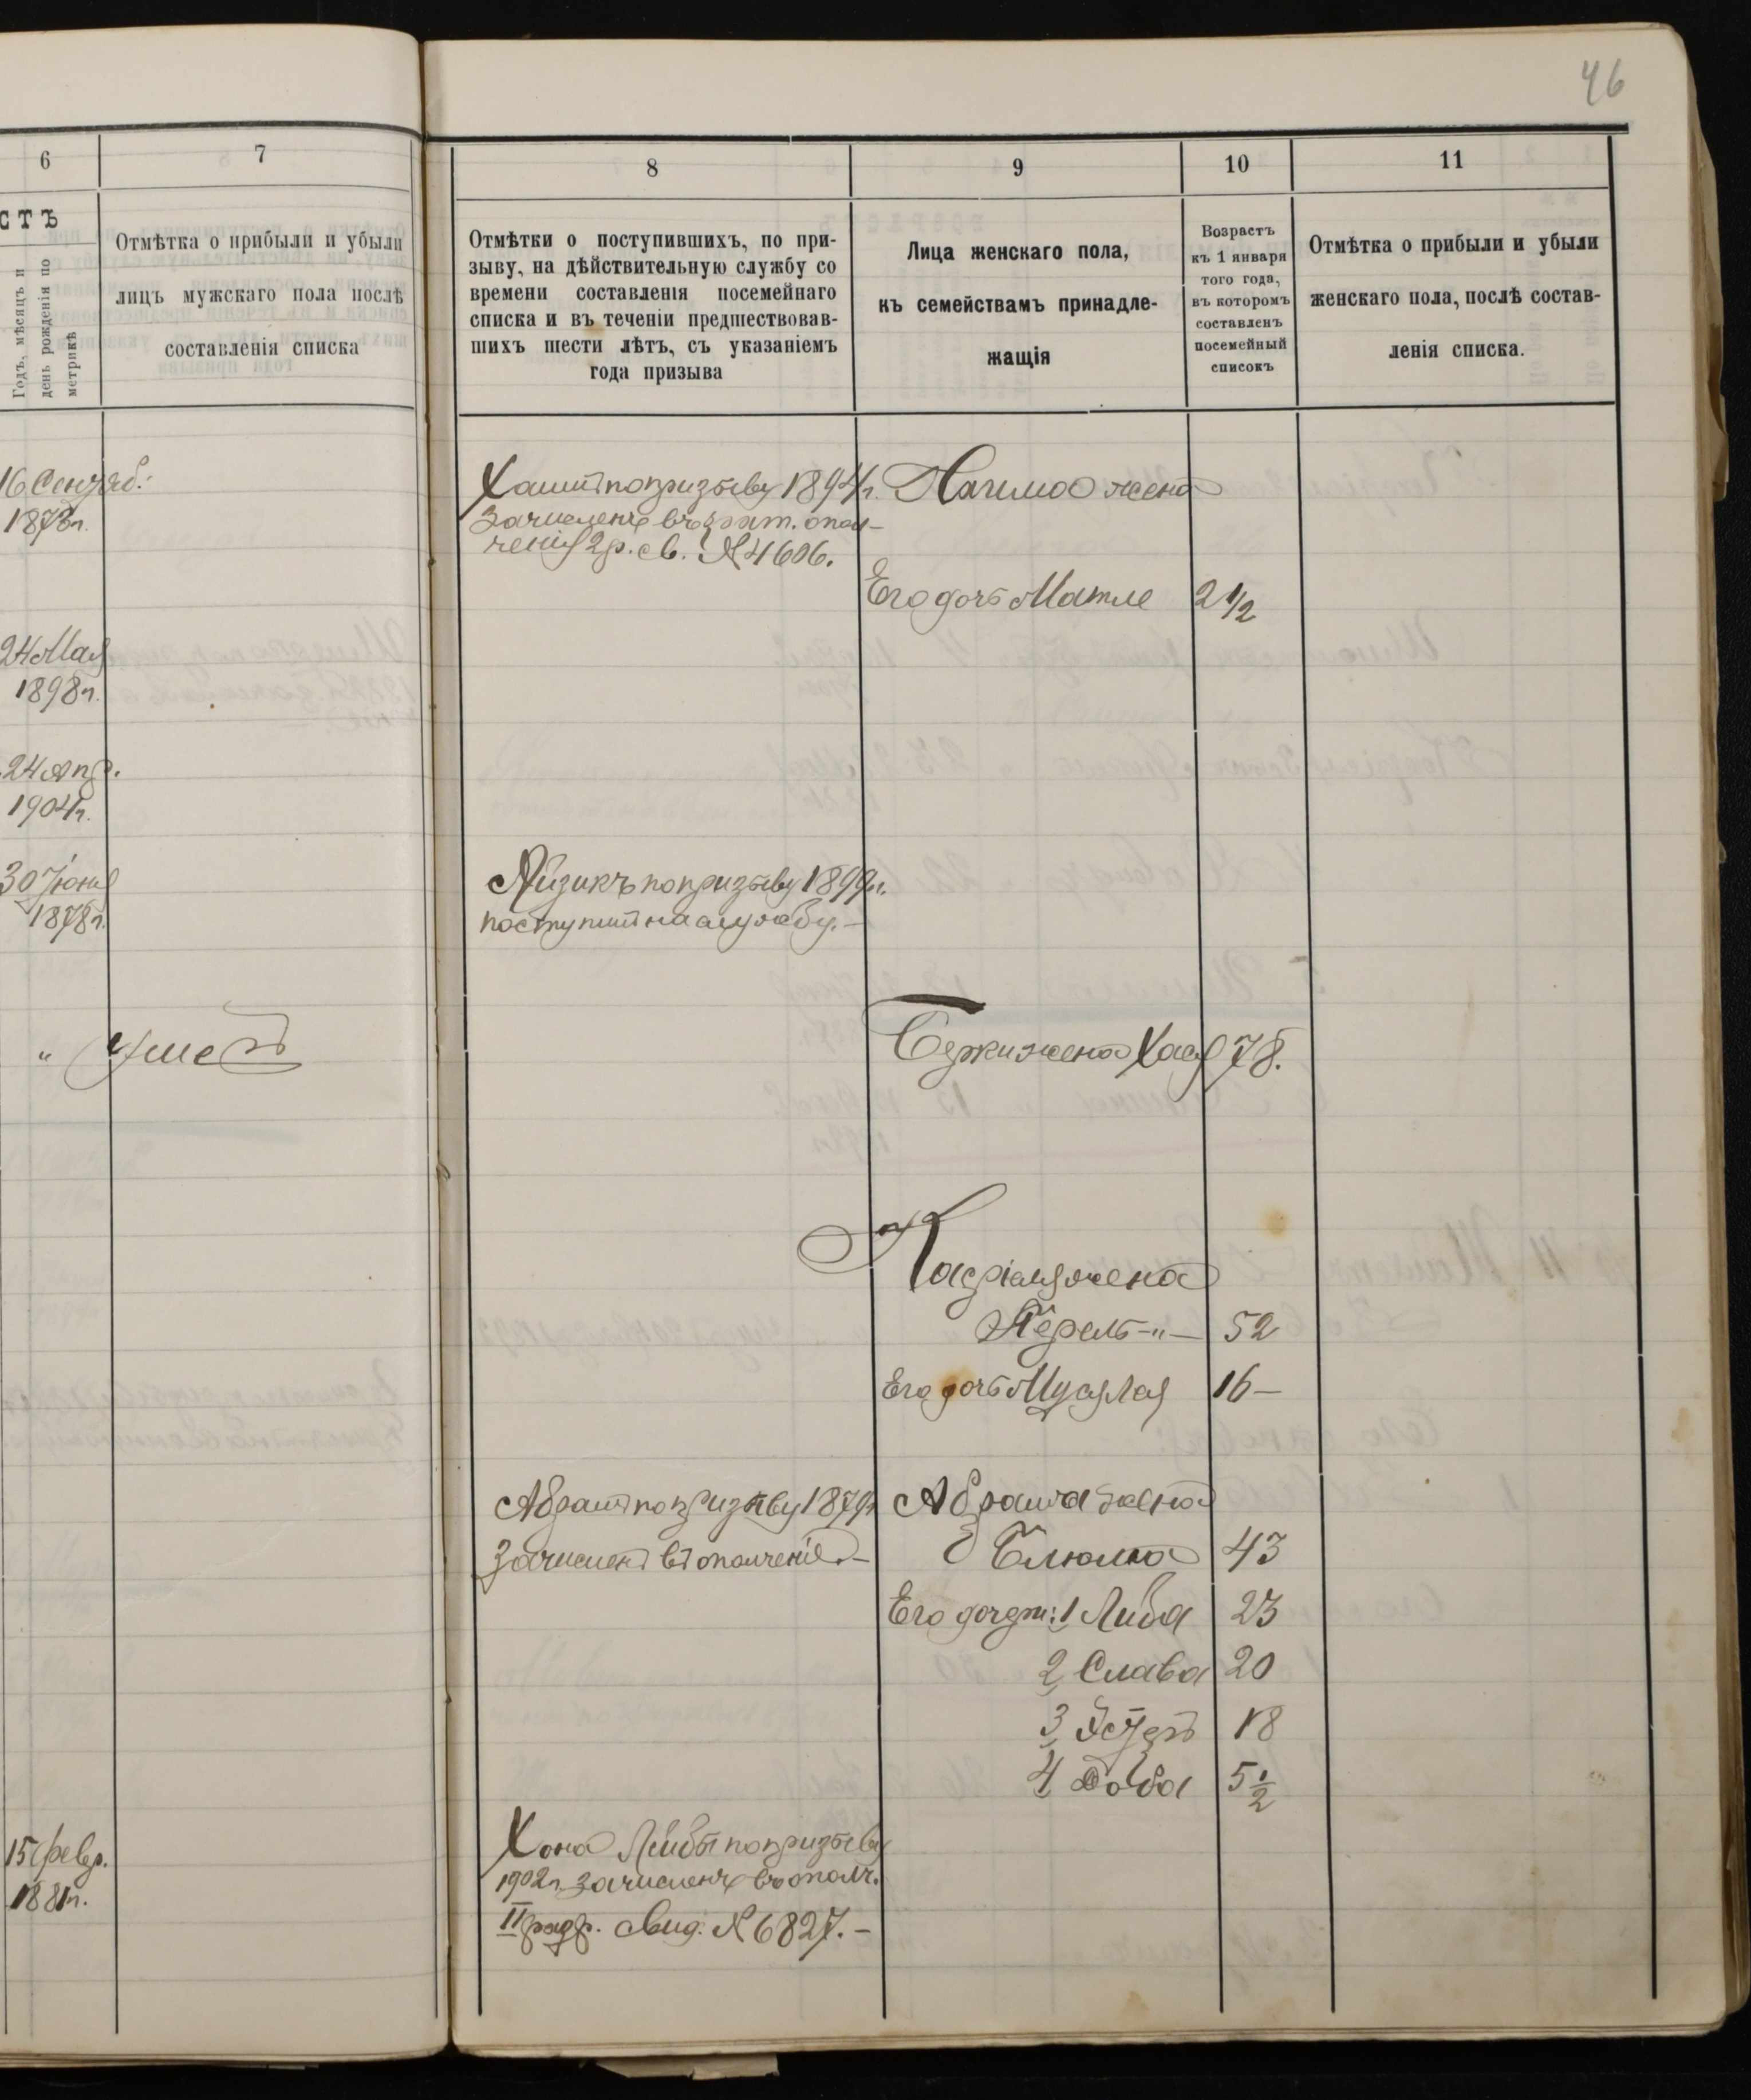 46
6
7
8
9
10
11
СТЪ
Годъ, мѣсяцъ и
день рожденія по
метрикѣ
Отмѣтка о прибыли и убыли
лицъ мужскаго пола послѣ
составленія списка
Отмѣтки о поступившихъ, по при-
зыву, на дѣйствительную службу со
времени составленія посемейнаго
списка и въ теченіи предшествовав-
шихъ шести лѣтъ, съ указаніемъ
года призыва
Лица женскаго пола,
къ семействамъ принадле-
жащія
Возрастъ
къ 1 января
того года,
въ которомъ
составленъ
посемейный
списокъ
Отмѣтка о прибыли и убыли
женскаго пола, послѣ состав-
ленія списка.
16 Сентяб.
1873г.
по призыву 1894г.
зачисленъ въ рат. опол-
ченія 2 р. св. № 4606.
жена
Его дочь Матле 2 1/2
24 Мая
1898г.
24 Апр.
1904г.
30 Іюня
1878г.
Айзикъ по призыву 1899г.
поступилъ на службу.-
" умеръ
Берки жена Хая 78.
жена
Перель -"- 52
Его дочь 16-
Абрамъ по призыву 1879г.
зачисленъ въ ополченіе.-
Абрама жена
Блюма 43
Его дочери: 1 Либа 23
2 Слава 20
3 Эстеръ 18
4 Доба 5 1/2
15 Февр.
1881г.
Хона Лейбъ по призыву
1902г. зачисленъ въ ополч.
II разр. свид. № 6827.-